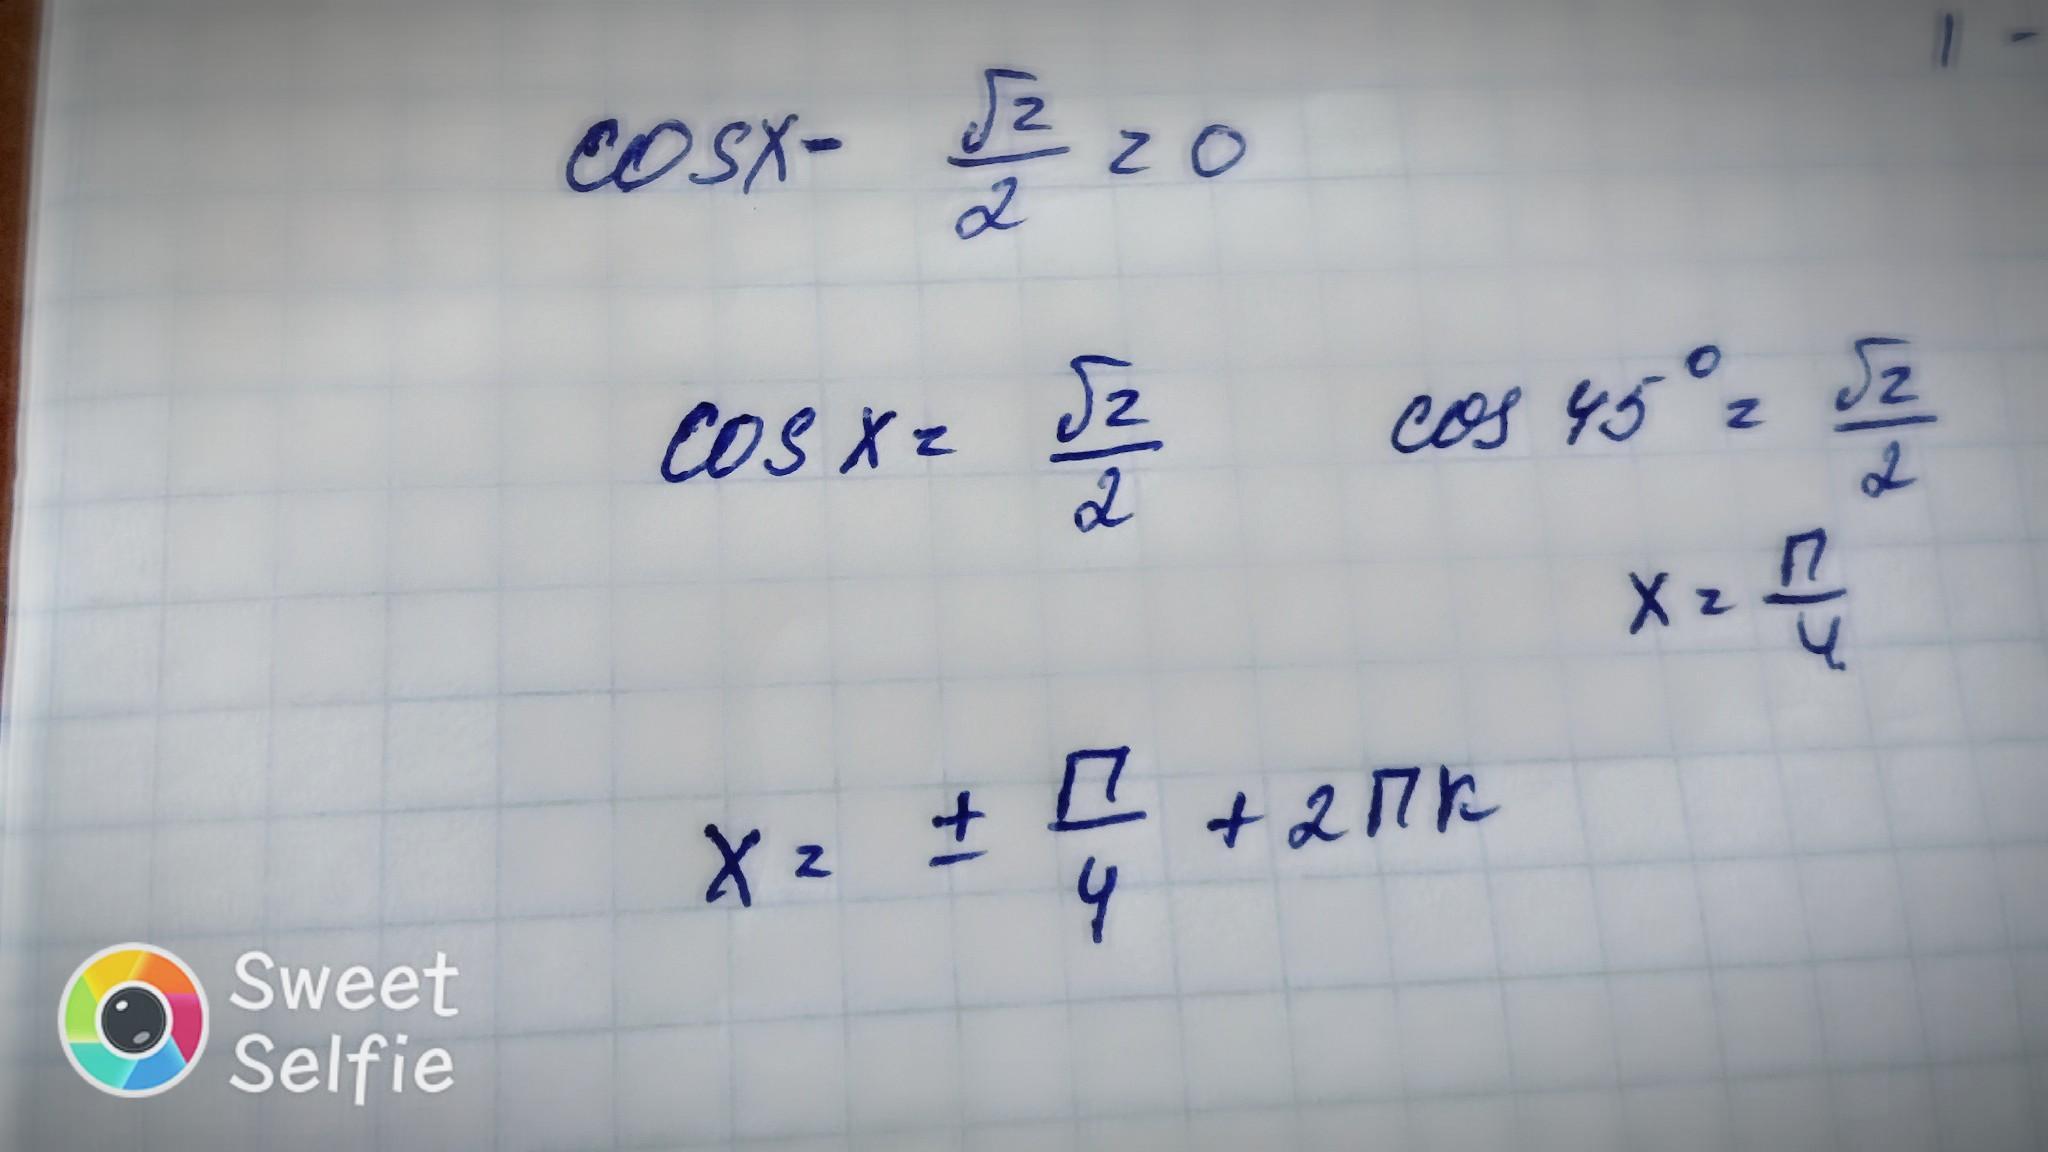 1 -
cosx - √2/2 = 0
cos x = √2/2
cos 45° = √2/2
x = П/4
x = ± П/4 + 2Пк
Sweet
Selfie